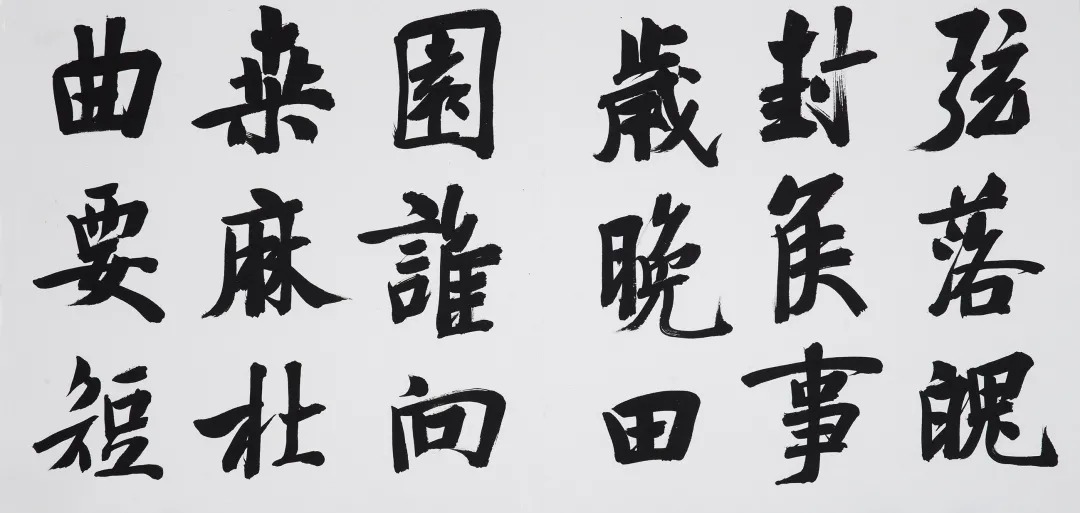 弦落魄
封侯事
歲晚田
園誰向
桒麻杜
曲要短